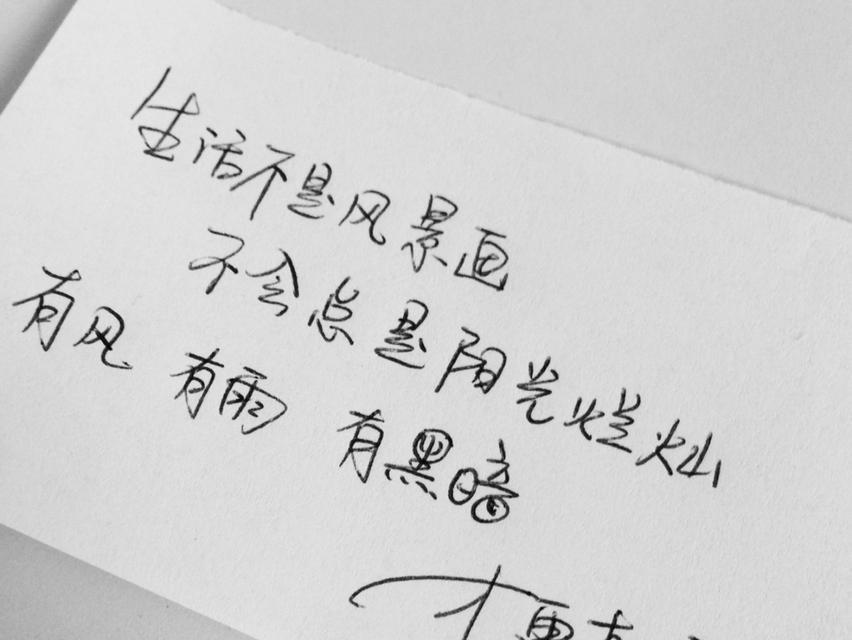 生活不是风景画
不会总是阳光烂灿
有风 有雨 有黑暗
才更